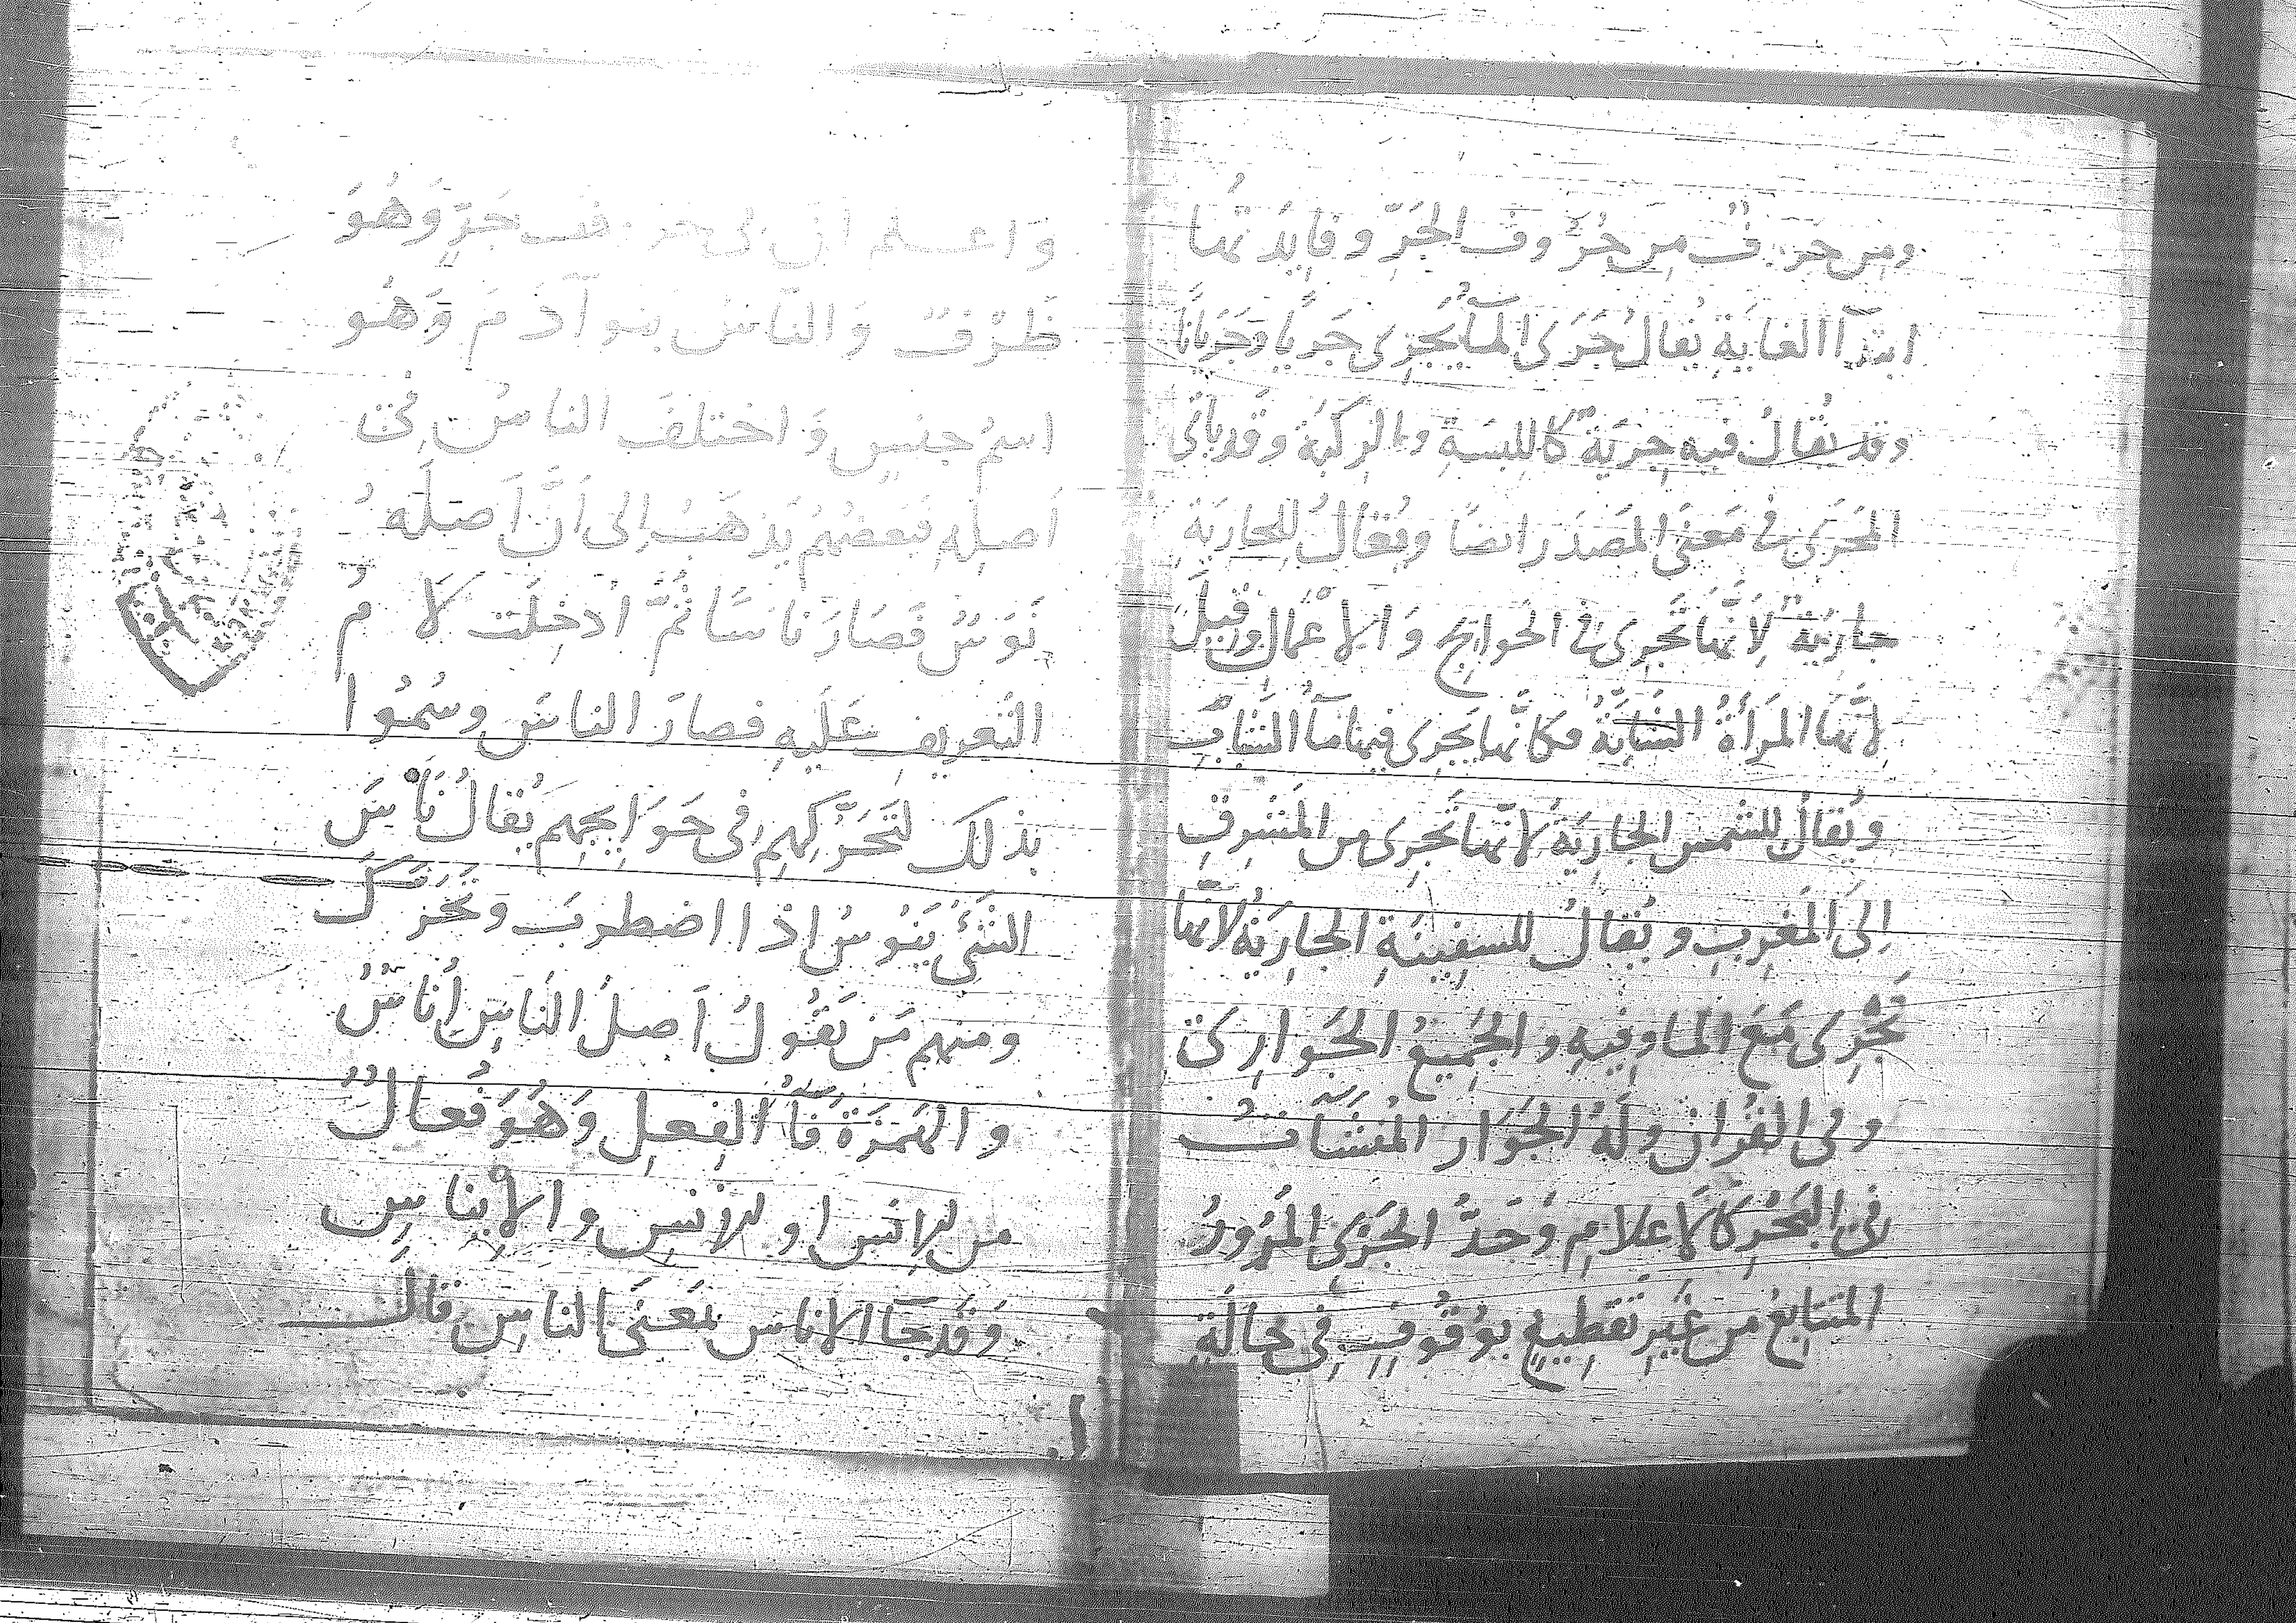 ومِن حرفٌ مِن حُرُوف الجَرِّ وفايِدَتُها
ابتدآ الغايَةِ يُقالُ جَرَى المآ يَجرِى جَريًا وجَرَيانًا
وقد يُقالُ فيه جِريَةٌ كاللِبسَةِ والرِكبَةِ وقد ياتى
المَجرَى فى مَعنَى المَصدَر ايضًا ويُقالُ للجارِيَةِ
جارِيَةٌ لِانَّها تَجرِى فى الحَوايِج وَالاعمال وقيلَ
لانَّها المَرأةُ الشابَّةُ فكانَّها يَجرِى فيها مآ الشَباب
ويُقالُ للشمس الجارِيَةُ لانّها تَجرِى من المَشرِقِ
اِلىَ المَغرِبِ ويُقالُ للسفِينَةِ الجارِيَةُ لانّها
تَجْرِى مَعَ الما وفِيهِ والجَمِيعُ الجَوارِى
وفى القُرانِ ولَهُ الجَوَار المُنشَآتُ
فى البَحْرِ كَالاعلامِ وَحَدُّ الجَرْىِ المُرُورُ
المتتابِعُ من غَيرِ تَقطِيعٍ بوُقُوفٍ فِى حالَةٍ
وَاعلم انّ فى حرف جَرٍّ وَهُوَ
ظَرْفٌ وَالناسُ بنو آدَمَ وَهُو
اسمُ جنسٍ وَاختلفَ الناسُ فى
اَصلِهِ فبَعضُهُم يَذهَبُ اِلى اَنَّ اَصلَهُ
نَوَسٌ فَصَارَ ناسًا ثُمَّ اُدخِلَت لامُ
التعريفِ عَلَيهِ فصارَ الناسَ وسُمُّوا
بذلك لتَحَرُّكِهِم فى حَوَايِجِهِم يُقالُ نَاسَ
الشَئُ يَنُوسُ اذا اضطربَ وتَحَرَّكَ
ومنهم مَن يَقُولُ اَصلُ الناسِ اُناسٌ
والهَمزَةُ فَآُ الفِعلِ وَهُوَ فُعالٌ
من الاِنس او الاُنسِ والاِيناسِ
وَقَد جآ الاناس بمَعنَى الناسِ قالَ